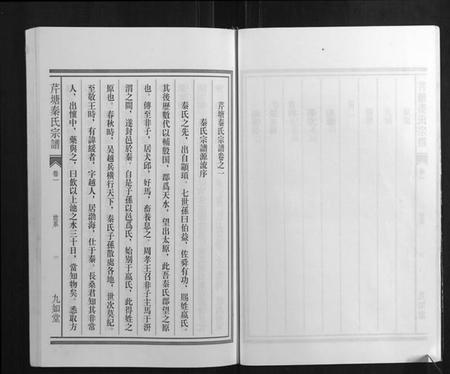 芹塘秦氏宗譜卷之一
秦氏宗譜源流序
秦氏之先，出自顓頊。七世孫曰伯益，佐舜有功，賜姓嬴氏。
其後歷數代以輔殷国，郡爲天水，望出太原，此吾秦氏郡望之原
也。傳至非子，居犬邱，好馬，畜養息之。周孝王召非子主馬于汧
渭之間，遂封邑於秦。自是子孫以邑爲氏，始别于嬴氏，此得姓之
原也。春秋時，吴越兵橫行天下，秦氏子孫散處各地，世次莫紀。
至敬王時，有諱緩者，字越人，居渤海，仕于秦。長桑君知其非常
人，出懷中，藥與之，曰飲以上池之水三十日，當知物矣。悉取方
芹塘秦氏宗譜
卷一
世系
一
九如堂